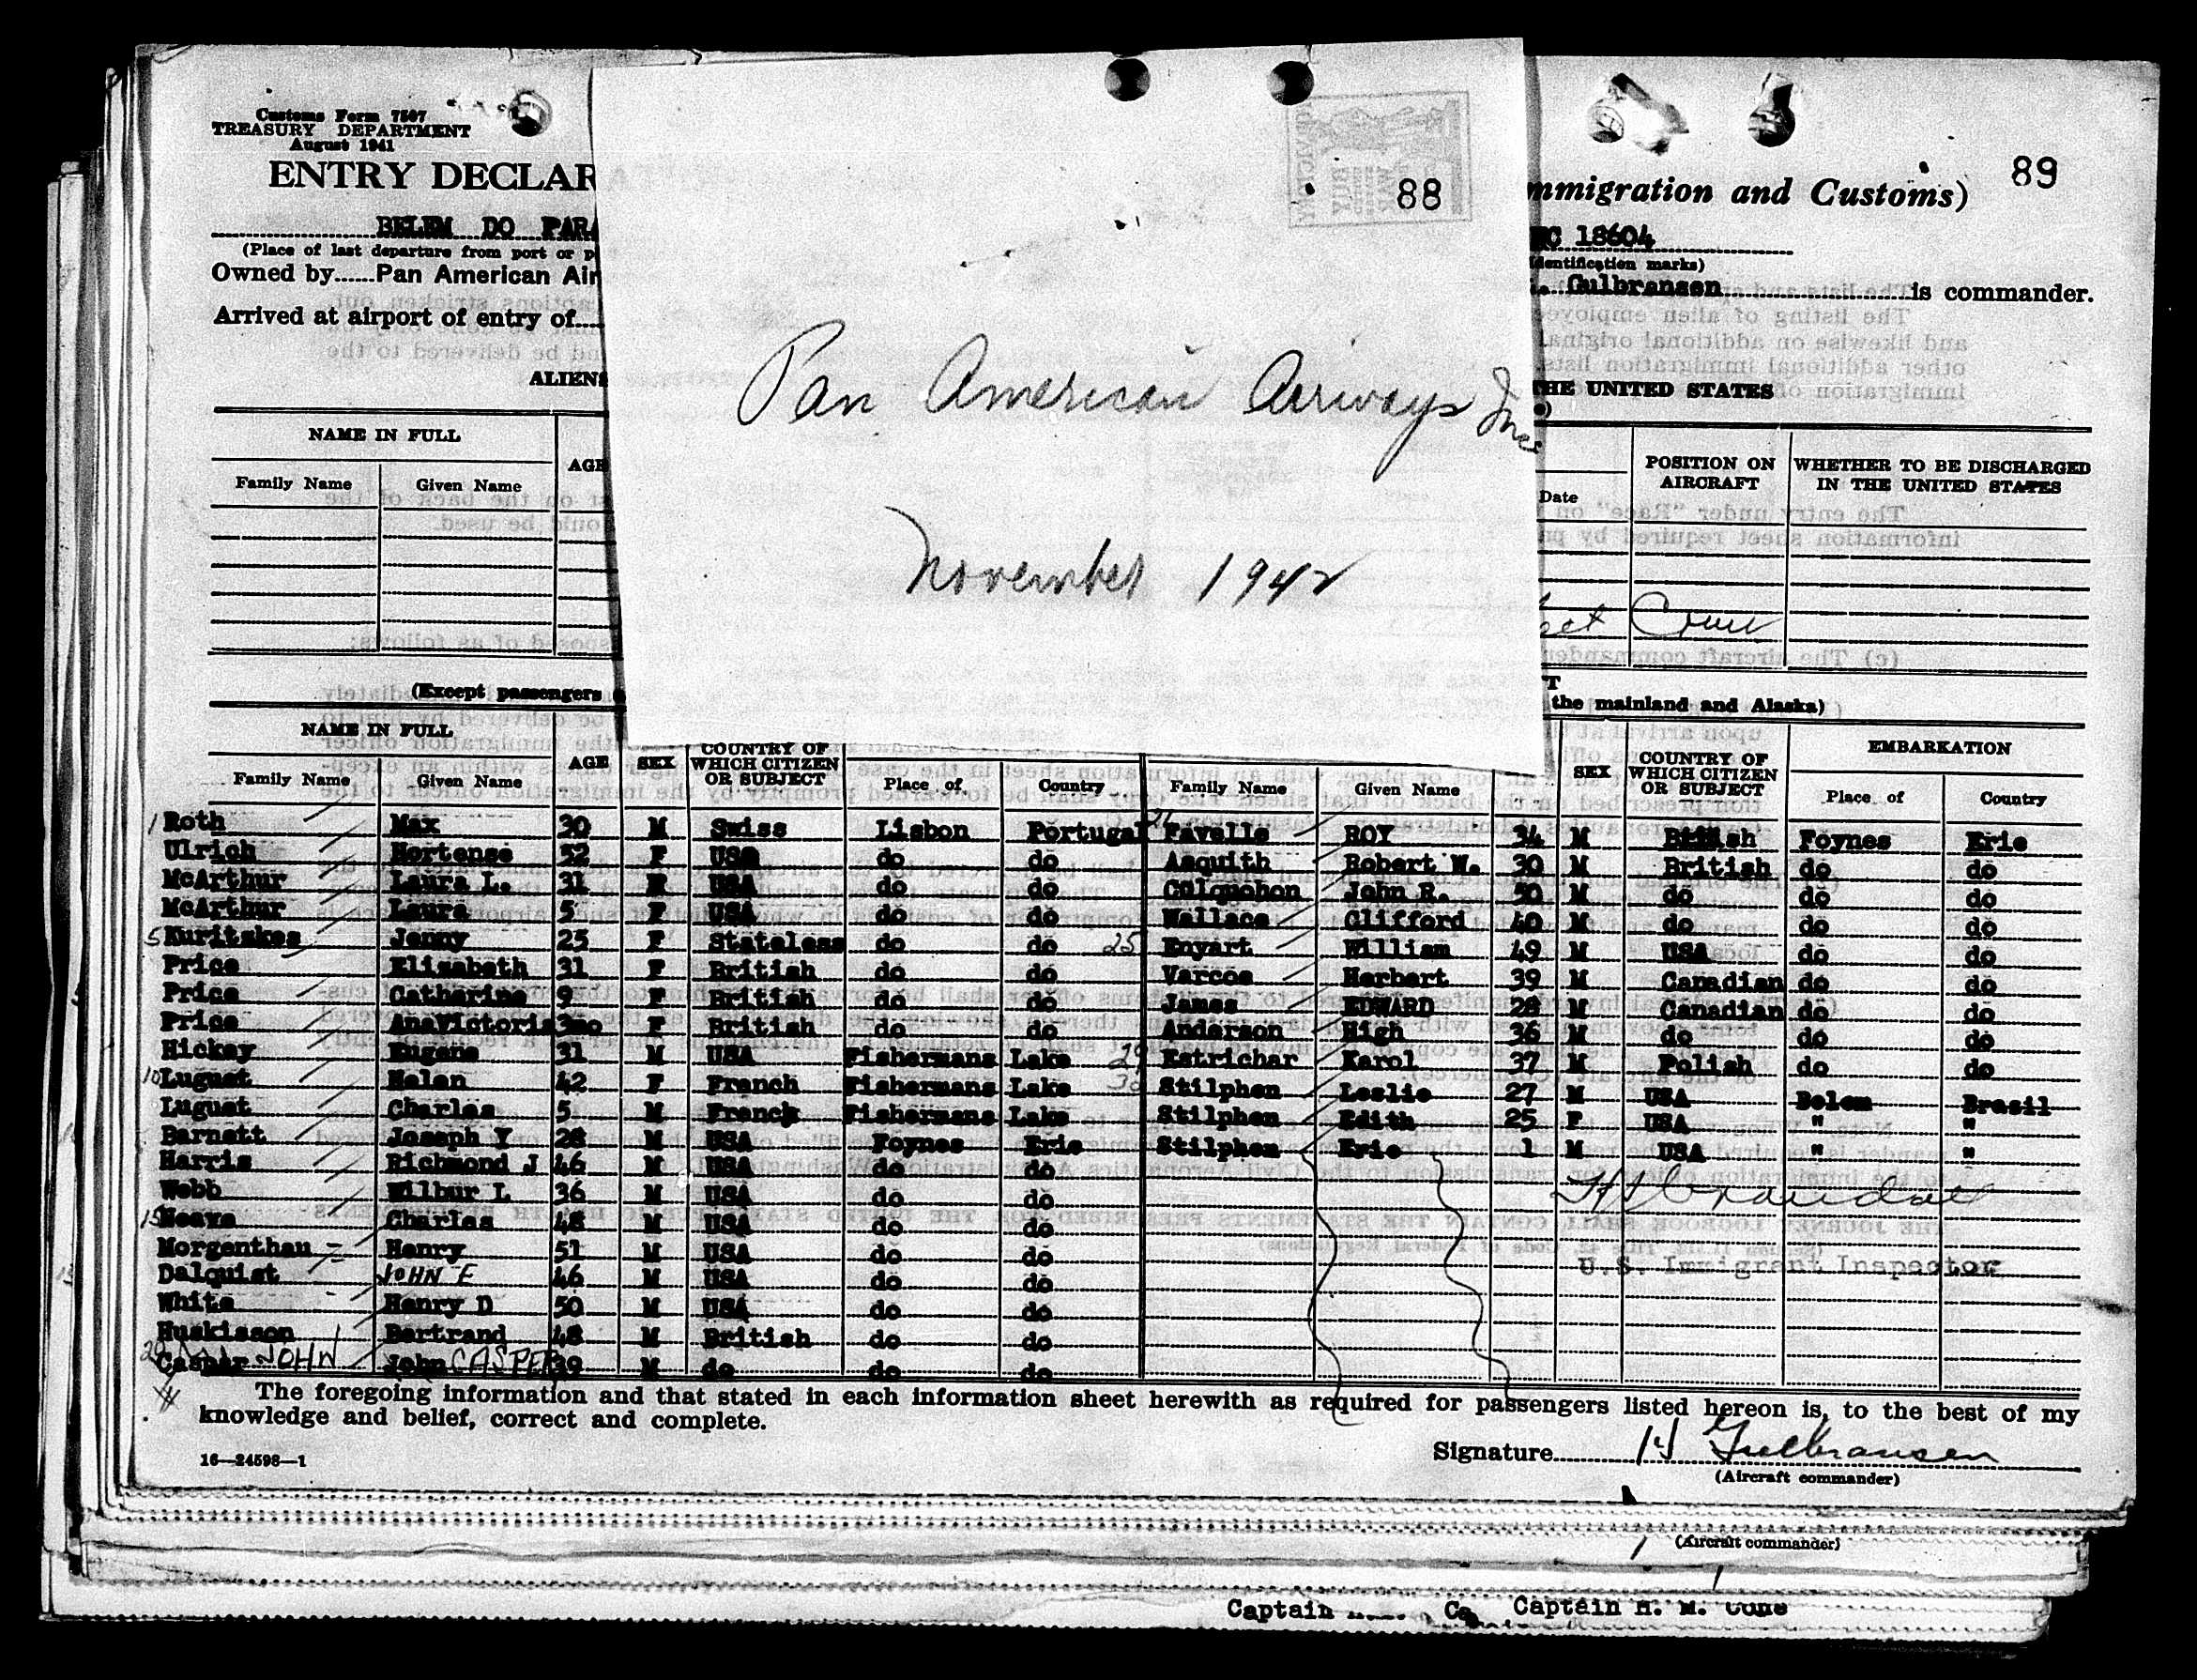 Customs Form 7507
TREASURY DEPARTMENT
August 1941
ENTRY DECLAR
mmigration and Customs)
89
88
BELEM DO PARA
NC 18604
(Place of last departure from port or p
dentification marks)
Owned by Pan American Air
. Gulbransen is commander.
Arrived at airport of entry of
Pan American Airways Inc
November 1942
ALIENS
THE UNITED STATES
NAME IN FULL
AGE
Family Name Given Name
Date
POSITION ON AIRCRAFT
WHETHER TO BE DISCHARGED IN THE UNITED STATES
Crew
(Except passengers
the mainland and Alaska)
NAME IN FULL AGE SEX COUNTRY OF WHICH CITIZEN OR SUBJECT Place of Country Family Name Given Name SEX COUNTRY OF WHICH CITIZEN OR SUBJECT EMBARKATION
Family Name Given Name Place of Country
1 Roth Max 30 M Swiss Lisbon Portugal 21 Favelle ROY 34 M British Foynes Erie
Ulrich Hortense 52 F USA do do Asquith Robert W. 30 M British do do
McArthur Laura L. 31 USA do do Colquohon John R. 50 M do do do
McArthur Laura 5 F USA do do Wallace Clifford 40 M do do do
5 Kuritzkes Jenny 25 F Stateless do do 25 Enyart William 49 M USA do do
Price Elizabeth 31 F British do do Varcoe Herbert 39 M Canadian do do
Price Catharine 9 F British do do James EDWARD 28 M Canadian do do
Price AnaVictoria 3mo F British do do Anderson High 36 M do do do
Hickey Eugene 31 M USA Fishermans Lake 29 Estrichar Karol 37 M Polish do do
10 Luguet Helen 42 F French Fishermans Lake 30 Stilphen Leslie 27 M USA Belem Brasil
Luguet Charles 5 M French Fishermans Lake Stilphen Edith 25 F USA " "
Barnett Joseph Y 28 M USA Foynes Erie Stilphen Eric 1 M USA " "
Harris Richmond J 46 M USA do do
Webb Wilbur L 36 M USA do do
15 Neave Charles 48 M USA do do
Morgenthau Henry 51 M USA do do
Dalquist JOHN E 46 M USA do do
U.S. Immigrant Inspector
White Henry D 50 M USA do do
Huskisson Bertrand 48 M British do do
20 Caspar JOHN John CASPER 39 M do do do
The foregoing information and that stated in each information sheet herewith as required for passengers listed hereon is, to the best of my
knowledge and belief, correct and complete.
16—24598—1
Signature H Gulbransen
(Aircraft commander)
(Aircraft commander)
Captain Captain H. M. Cone